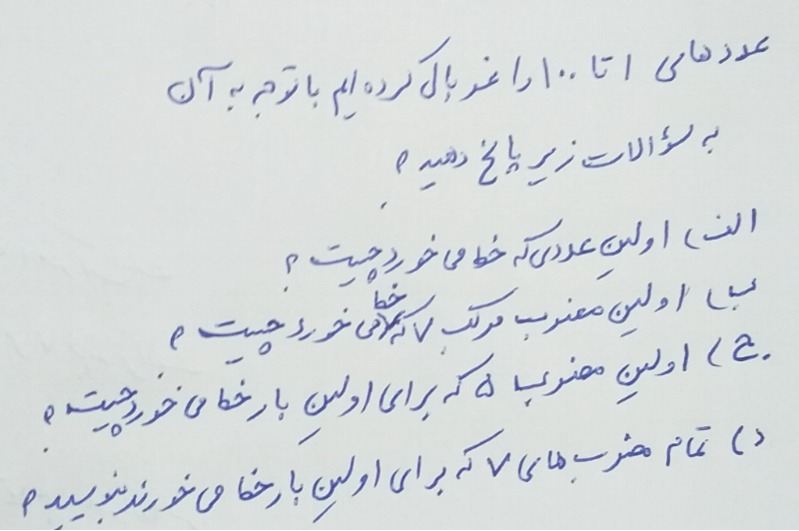 عددهای ۱ تا ۱۰۰ را غربال کرده ایم با توجه به آن
به سؤالات زیر پاسخ دهید؟
الف) اولین عددی که خط می خورد چیست؟
ب) اولین مضرب مرکب ۷ که خط می خورد چیست؟
ج) اولین مضرب ۵ که برای اولین بار خط می خورد چیست؟
د) تمام مضرب های ۷ که برای اولین بار خط می خورند بنویسید؟